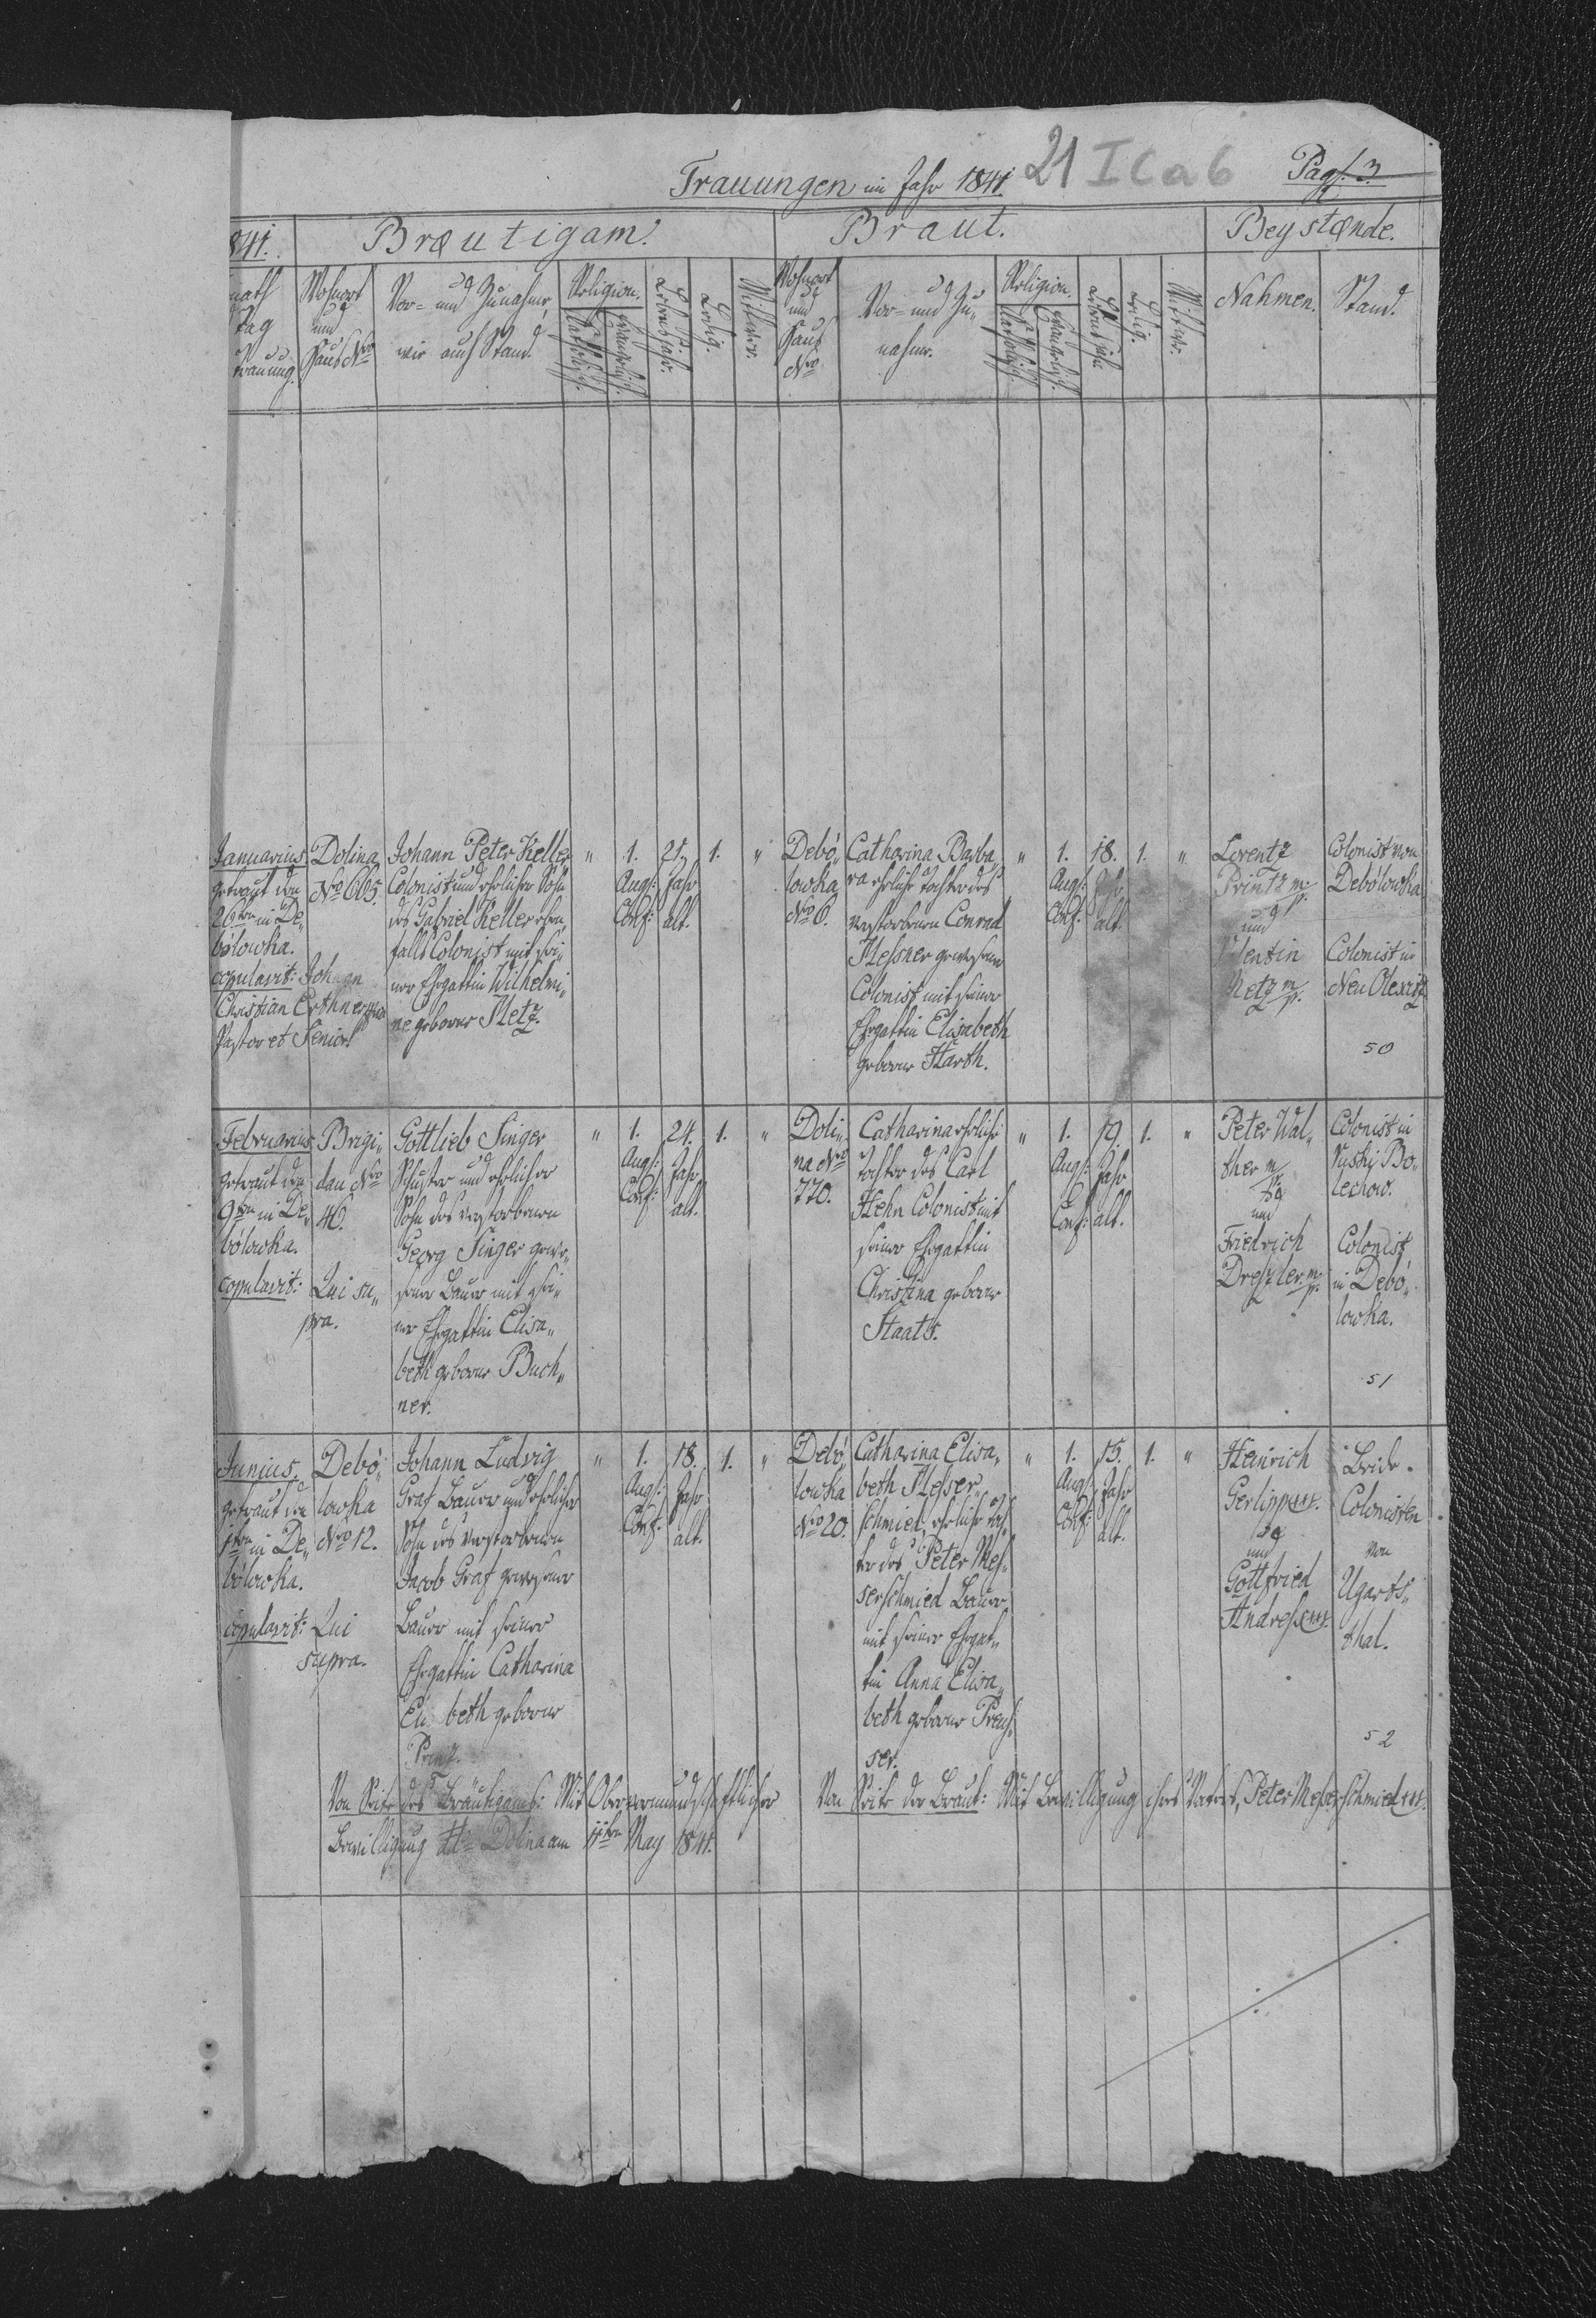 Trauungen im Jahr 1841. 21 I C a 6 Pag. 3.
841. Bræutigam. Braut. Beystænde.
nath
Tag
Trauung.
Wohnort
und
Haus Nro
Vor- und Zunahme,
wie auch Stand.
Religion.
Catholisch.
Evangelisch.
Lebensjahr.
Ledig.
Wittwer.
Wohnort
und
Haus
Nro
Vor- und Zu„
nahme.
Religion.
Catholisch.
Evangelisch.
Lebensjahr
Ledig.
Wittwe.
Nahmen.
Stand.
Januarius
getraut den
26ten in De„
bólowka.
copulavit: Johann
Christian Erthner
Pastor et Senior
Dolina
Nro 665.
Johann Peter Keller
Colonist und ehrlicher Sohn
des Gabriel Keller eben„
falls Colonist mit sei„
ner Ehgattin Wilhelmi„
ne geborne Metz.
"
1.
Augs:
Conf:
21.
Jahr
alt.
1.
"
Debó„
lowka
Nro 6.
Catharina Barba„
ra ehrliche Tochter des
verstorbenen Conrad
Messner gewesenen
Colonist mit seiner
Ehgattin Elisabeth
geborne Harth.
"
1.
Augs:
Conf:
18.
Jahr
alt.
1.
"
Lorentz
Printz m/p.
und
lentin
Metz m/p.
Colonist von
Debólowka
Colonist in
Neu Olexitz
50
Februarius
getraut den
9ten in De„
bólowka.
copulavit: Qui su„
pra.
Brigi„
dau Nro
46.
Gottlieb Singer
Schuster und ehrlicher
Sohn des verstorbenen
Georg Singer gewe„
sener Bauer mit sei„
ner Ehgattin Elisa„
beth geborne Buch„
ner.
"
1.
Augs:
Conf:
24.
Jahr
alt.
1.
"
Doli„
na Nro
770.
Catharina ehrliche
Tochter des Carl
Hehn Colonist mit
seiner Ehgattin
Christina geborne
Staats.
"
1.
Augs:
Conf:
19.
Jahr
alt.
1.
"
Peter Wal„
ther m/p.
und
Friedrich
Dreszler m/p.
Colonist in
Ruski Bo„
lechow.
Colonist
in Debó„
lowka.
51
Junius.
getraut den
1ten in De„
bólowka.
copulavit: Qui
supra.
Debó„
lowka
Nro 12.
Johann Ludvig
Graf Bauer und ehrlicher
Sohn des verstorbenen
Jacob Graf gewesener
Bauer mit seiner
Ehgattin Catharina
Eli beth geborne
Prinz.
"
1.
Augs:
Conf:
18.
Jahr
alt.
1.
"
Debó„
lowka
Nro 20.
Catharina Elisa„
beth Messer„
schmied, ehrliche Toch„
ter des Peter Mes„
serschmied Bauer
mit seiner Ehgat„
tin Anna Elisa„
beth geborne Preus„
ser.
"
1.
Augs:
Conf:
15.
Jahr
alt.
1.
"
Heinrich
Gerlipp +++.
und
Gottfried
Andress +++.
Beide
Colonisten
von
Ugarts„
thal.
52
Von Seite des Bräutigams: Mit Obervormundschaftlicher
Bewilligung Dolina am 11ten May 1841.
Von Seite der Braut: Mit Bewilligung ihres Vaters, Peter Messerschmied +++.